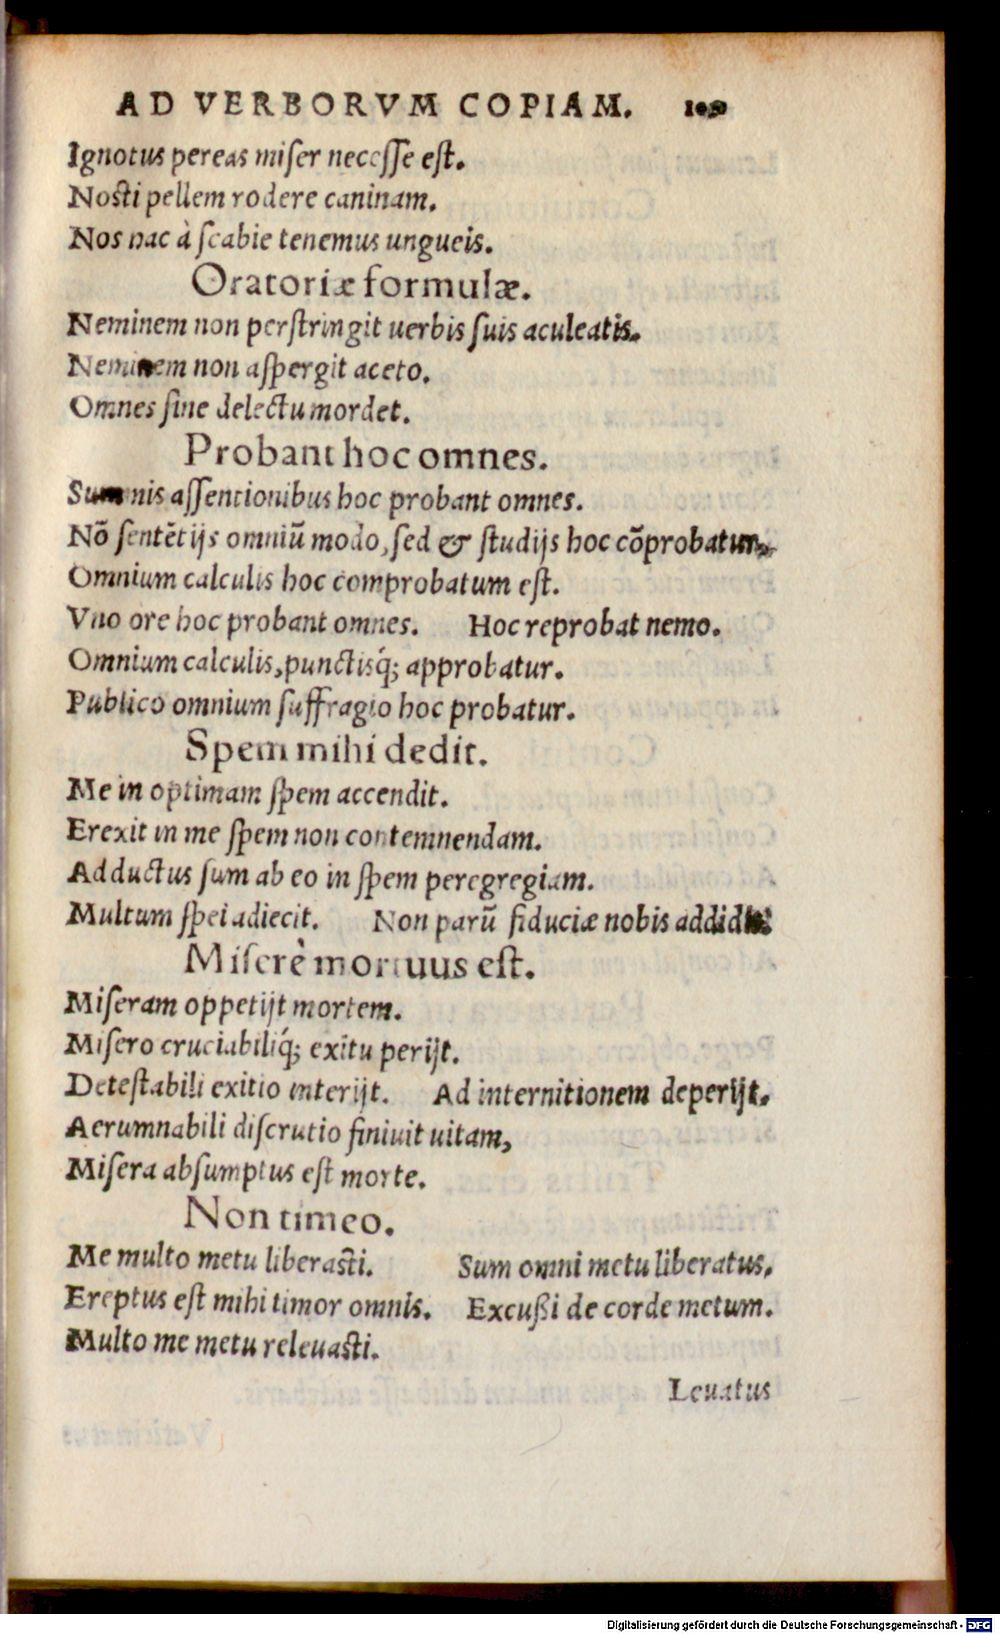 AD VERBORVM COPIAM.
Ignotus pereas miſer neceſſe eſt.
Noſti pellem rodere caninam.
Nos nac à ſcabie tenemus ungueis.
Oratoriæ formulæ.
Neminem non perſtringit uerbis ſuis aculeatis.
Neminem non aſpergit aceto.
Omnes ſine delectu mordet.
Probant hoc omnes.
Summis aſſentionibus hoc probant omnes.
Nō ſentētijs omniū modo, ſed & ſtudijs hoc cōprobatur.
Omnium calculis hoc comprobatum eſt.
Vno ore hoc probant omnes. Hoc reprobat nemo.
Omnium calculis, punctisq́; approbatur.
Publico omnium ſuffragio hoc probatur.
Spem mihi dedit.
Me in optimam ſpem accendit.
Erexit in me ſpem non contemnendam.
Adductus ſum ab eo in ſpem peregregiam.
Multum ſpei adiecit. Non parū fiduciæ nobis addidit.
Miſerè mortuus eſt.
Miſeram oppetijt mortem.
Miſero cruciabiliq́; exitu perijt.
Deteſtabili exitio interijt. Ad internitionem deperijt.
Aerumnabili diſcrutio finiuit uitam,
Miſera abſumptus eſt morte.
Non timeo.
Me multo metu liberaſti. Sum omni metu liberatus.
Ereptus eſt mihi timor omnis. Excußi de corde metum.
Multo me metu releuaſti.
Leuatus
Digitalisierung gefördert durch die Deutsche Forschungsgemeinschaft - DFG